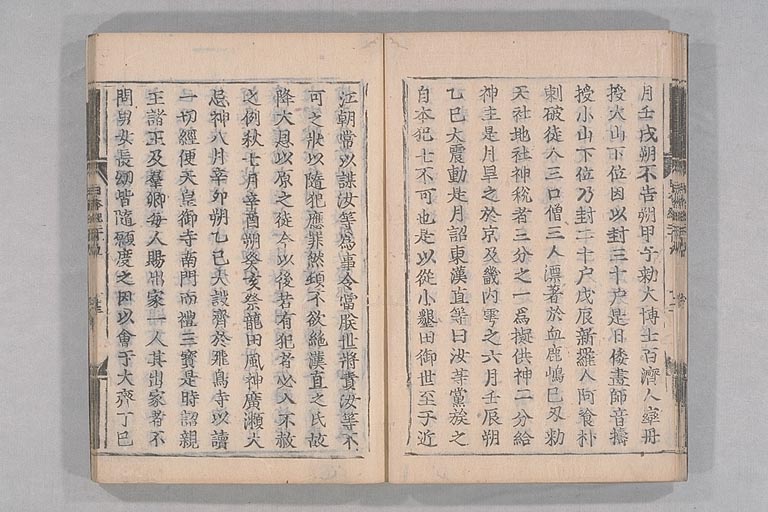 月壬戌朔不告朔甲子勅大博士百濟人率母
授大山下位因以封三十戸是日倭畫師音擣
授小山下位乃封二十戸戊辰新羅人阿飡朴
刺破從人三口僧三人漂著於血鹿嶋己丑勅
天社地社神税者三分之一爲擬供神二分給
神主是月旱之於京及畿内雩之六月壬辰朔
乙巳大震動是月詔東漢直等曰汝等黨族之
自本犯七不可也是以從小墾田御世至于近
江朝常以謀汝等爲事今當朕世將責汝等不
可之狀以隨犯應罪然頓不欲絶漢直之氏故
降大恩以原之從今以後若有犯者必入不赦
之例秋七月辛酉朔癸亥祭龍田風神廣瀬大
忌神八月辛卯朔乙巳大設齊於飛鳥寺以讀
一切經便天皇御寺南門而禮三寶是時詔親
王諸王及羣卿毎人賜出家一人其出家者不
問男女長幼皆隨願度之因以會于大齊丁巳